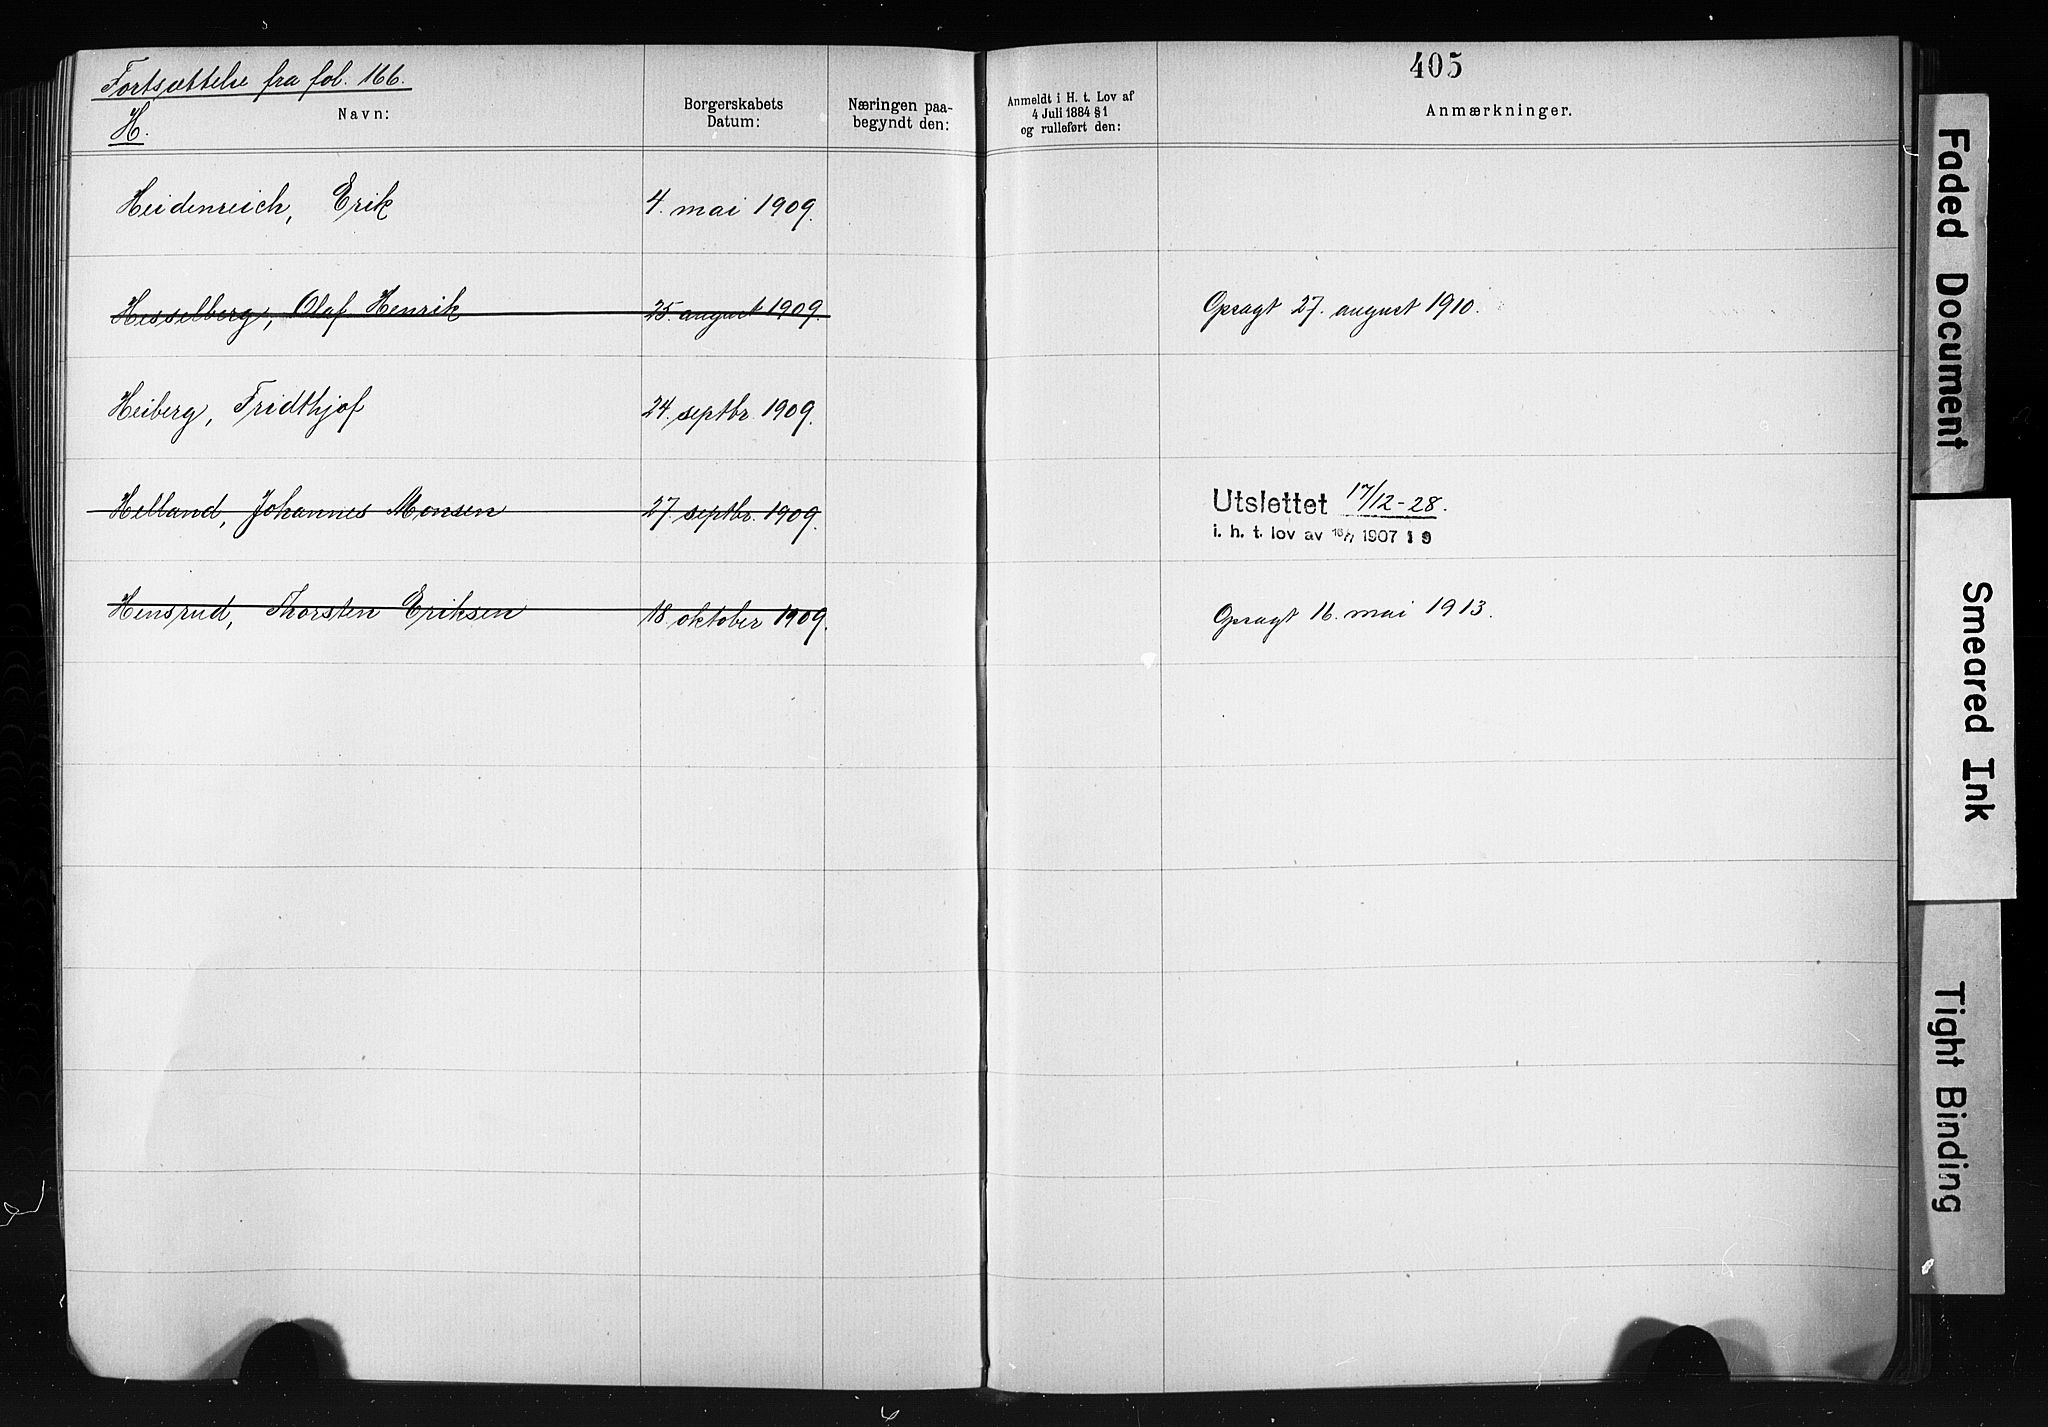 Fortsættelse fra fol. 166.
H.
Navn:
Borgerskabets
Datum:
Næringen paa-
begyndt den:
Anmeldt i H. t. Lov af
4 Juli 1884 § 1
og rulleført den:
405
Anmærkninger.
Heidenreich, Erik 4. mai 1909.
Hesselberg, Olaf Henrik 25. august 1909. Opsagt 27. august 1910.
Heiberg, Fridthjof 24. septbr. 1909.
Helland, Johannes Monsen 27. septbr. 1909. Utslettet 17/12-28.
i. h. t. lov av 16/7 1907 § 9
Hensrud, Thorsten Eriksen 18 oktober 1909. Opsagt 16. mai 1913.
Faded Document
Smeared Ink
Tight Binding